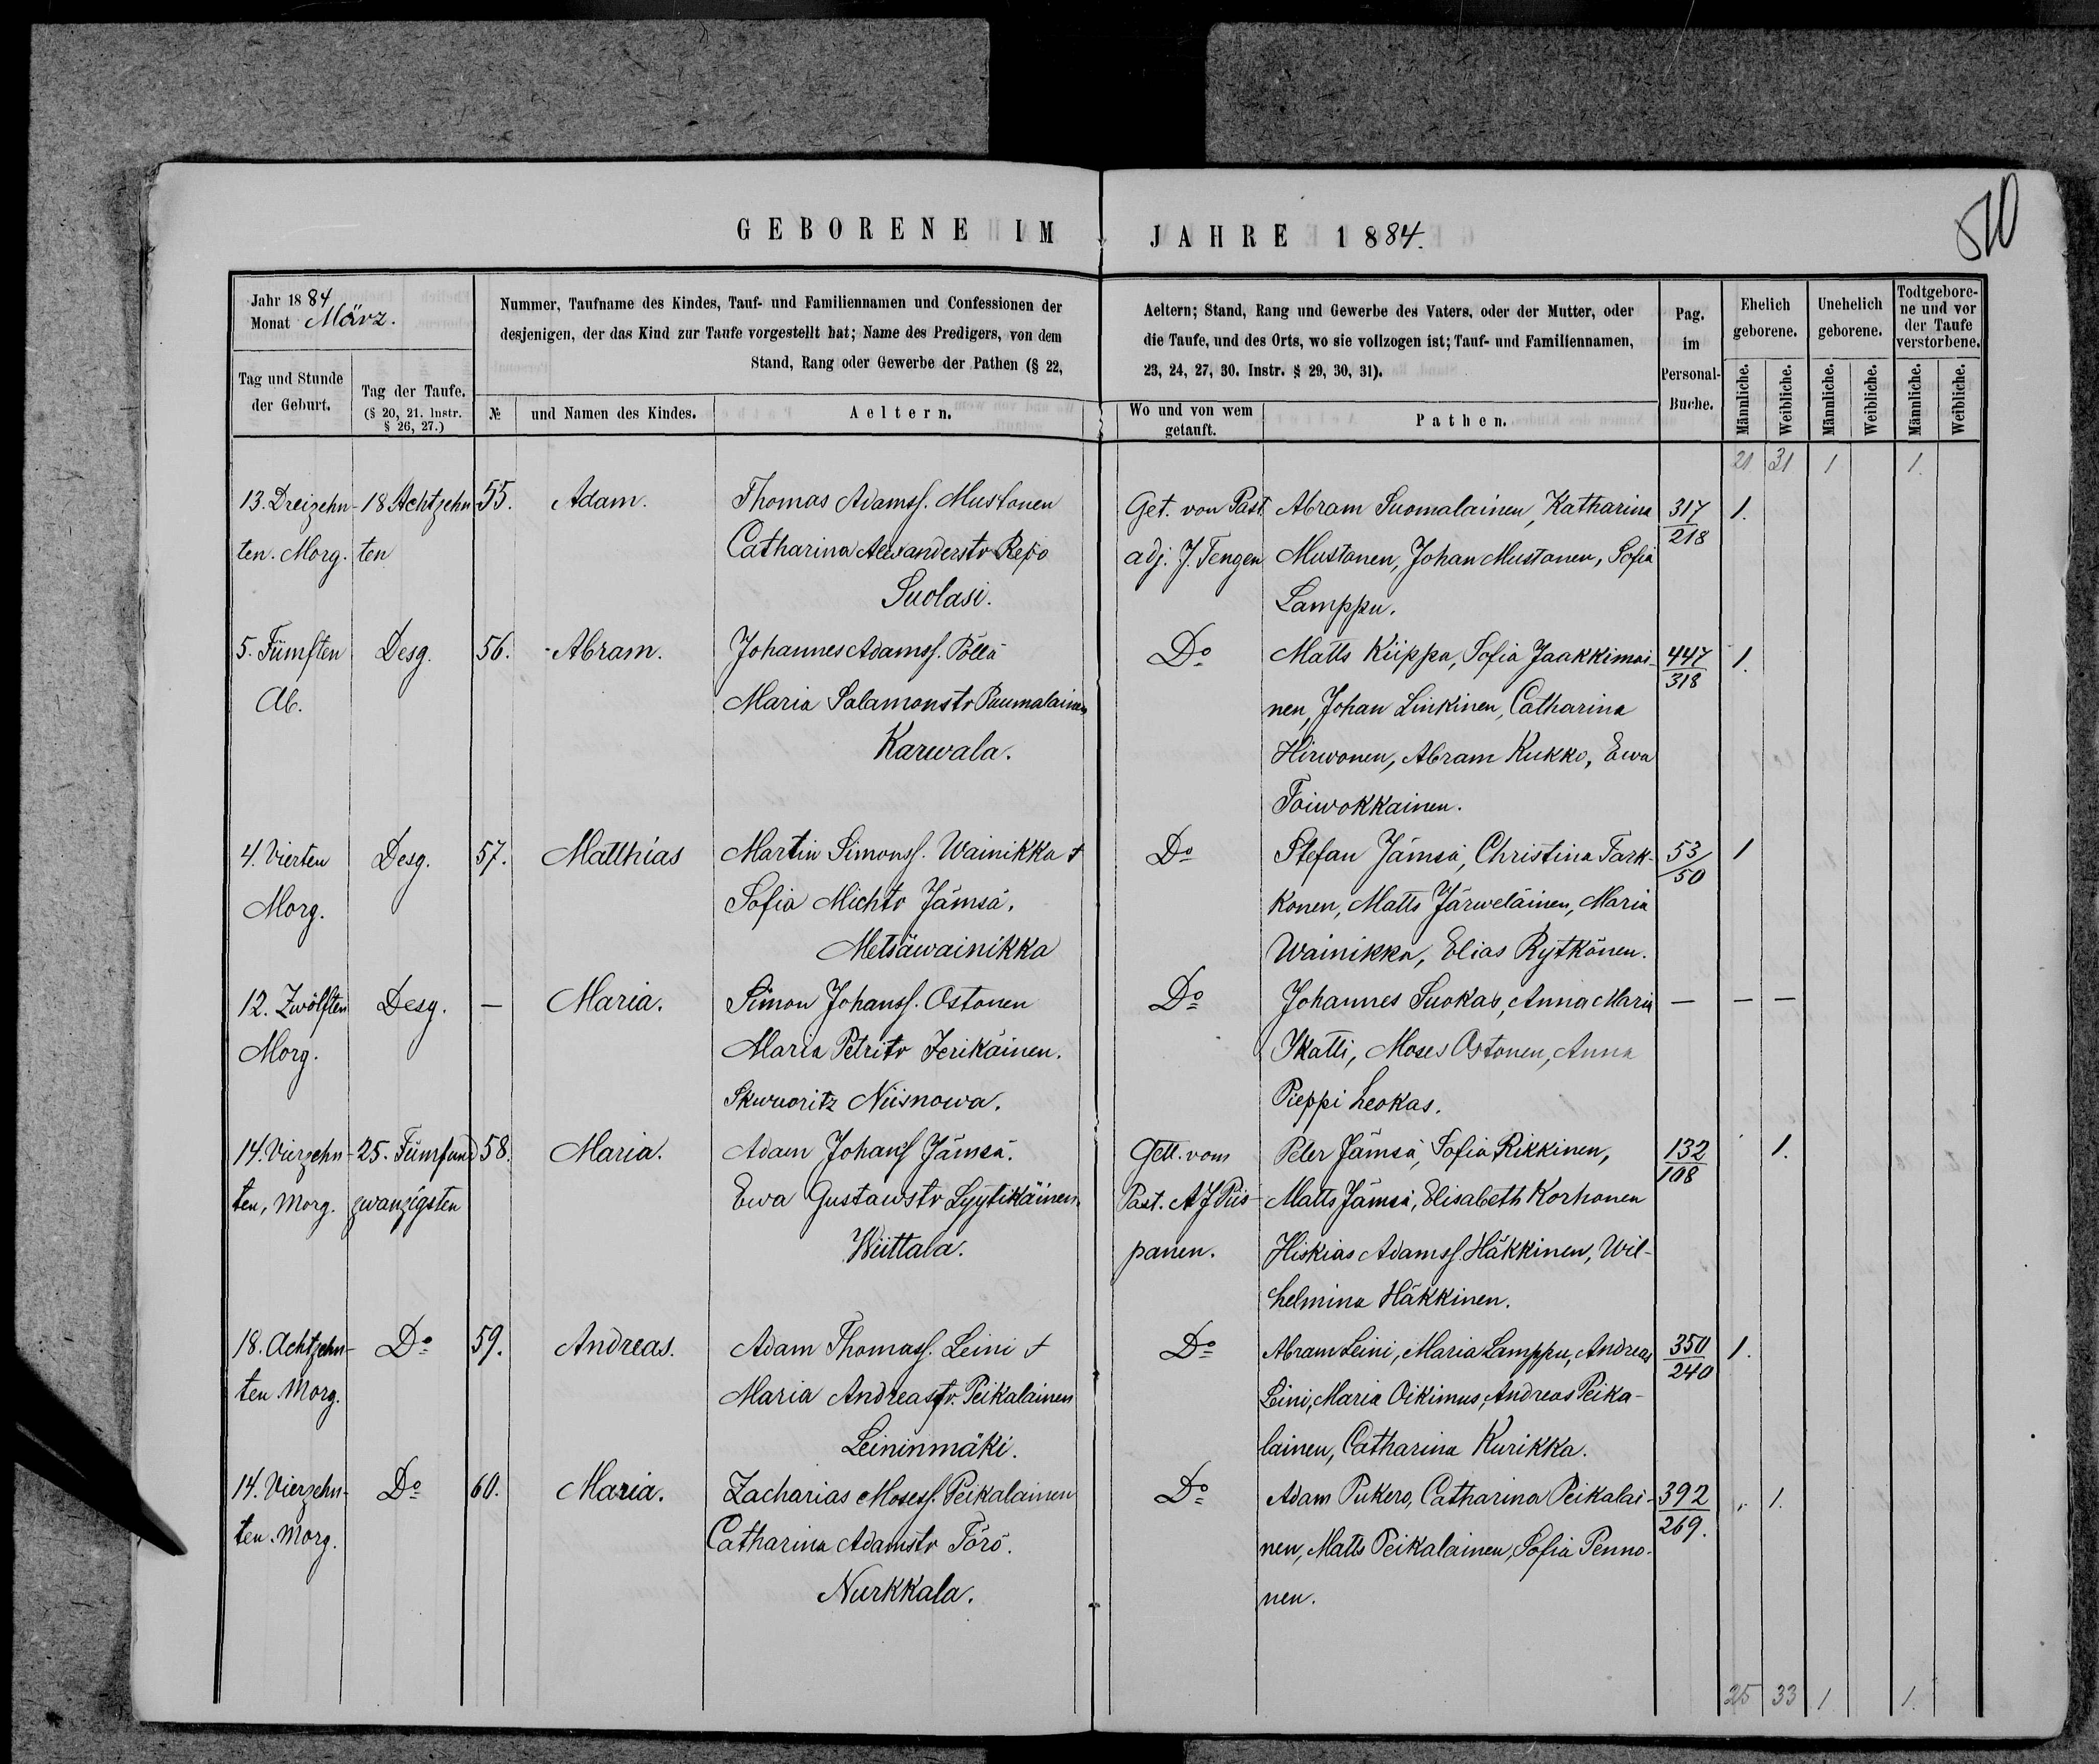 GEBORENE IM JAHRE 1884.
510
Jahr 1884
Monat März.
Nummer, Taufname des Kindes, Tauf- und Familiennamen und Confessionen der
desjenigen, der das Kind zur Taufe vorgestellt hat; Name des Predigers, von dem
Stand, Rang oder Gewerbe der Pathen (§ 22,
Aeltern; Stand, Rang und Gewerbe des Vaters, oder der Mutter, oder
die Taufe, und des Orts, wo sie vollzogen ist; Tauf- und Familiennamen,
23, 24, 27, 30. Instr. § 29, 30, 31).
Pag.
im
Personal-
Buche.
Ehelich
geborene.
Unehelich
geborene.
Todtgebore-
ne und vor
der Taufe
verstorbene.
Tag und Stunde
der Geburt.
Tag der Taufe.
(§ 20, 21. Instr.
§ 26, 27.)
№
und Namen des Kindes.
Aeltern.
Wo und von wem
getauft.
Pathen.
Männliche.
Weibliche.
Männliche.
Weibliche.
Männliche.
Weibliche.
21 31 1 1.
13. Dreizehn- 18 Achtzehn 55. Adam. Thomas Adamss. Mustonen Get. von Past. Abram Suomalainen, Katharina 317 1.
ten. Morg. ten Catharina Alexanderstr Repo adj. J. Tengen Mustonen, Johan Mustonen, Sofia 218
Suolasi. Lamppu.
5. Fümften Desg. 56. Abram. Johannes Adamss. Pöllä Do Matts Kiippa, Sofia Jaakkimai- 447 1.
Ab. Maria Salamonstr Paumalainen nen, Johan Linkinen, Catharina 318
Karwala. Hirwonen, Abram Kukko, Ewa
Toiwokkainen.
4. Vierten Desg. 57. Matthias Martin Simonss. Wainikka + Do Stefan Jämsä, Christina Tark- 53 1
Morg. Sofia Michtr Jämsä. konen, Matts Järweläinen, Maria 50
Metsäwainikka Wainikka, Elias Rytkönen.
12. Zwölften Desg. — Maria. Simon Johanss. Ostonen Do Johannes Suokas, Anna Maria — — —
Morg. Maria Petritr Jerikäinen. Ikatti, Moses Ostonen, Anna
Skwuoritz Niisnowa. Pieppi Leokas.
14. Vierzehn- 25. Fümfund 58. Maria. Adam Johanss Jämsä. Gett. vom Peter Jämsä, Sofia Rikkinen, 132 1.
ten, Morg. zwanzigsten Ewa Gustawstr Lyytikäinen. Past. A J Piis- Matts Jämsä, Elisabeth Korhonen 108
Wiittala. panen. Hiskias Adamss. Häkkinen, Wil-
helmina Häkkinen.
18. Achtzehn- Do 59. Andreas. Adam Thomass. Leini + Do Abram Leini, Maria Lamppu, Andreas 350 1.
ten Morg. Maria Andreastr. Peikalainen Leini, Maria Oikimus, Andreas Peika- 240
Leininmäki. lainen, Catharina Kurikka.
14. Vierzehn- Do 60. Maria. Zacharias Mosess. Peikalainen Do Adam Pukero, Catharina Peikalai- 392 1.
ten. Morg. Catharina Adamstr Törö. nen, Matts Peikalainen, Sofia Penno- 269.
Nurkkala. nen.
25 33 1 1.